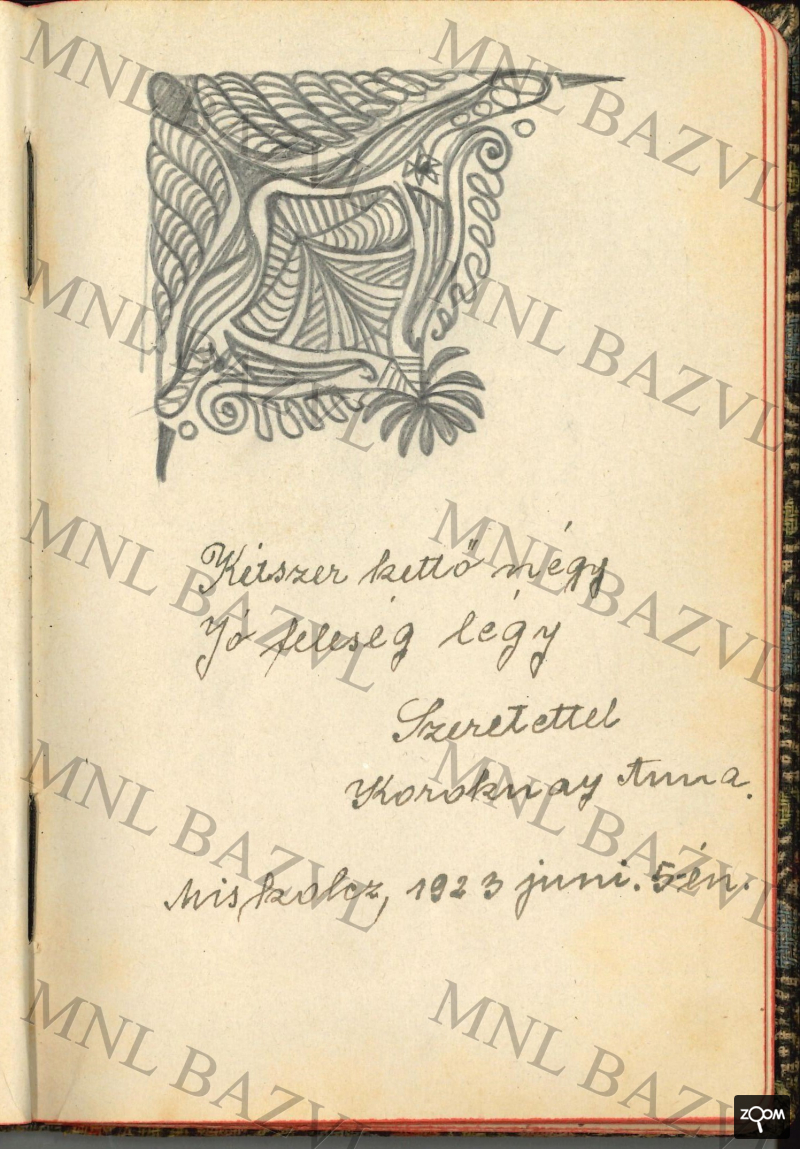 Kétszer kettő négy
Jó feleség légy
Szeretettel
Koroknay Anna.
Miskolcz, 1923 juni. 5-én.
MNL BAZVL
MNL BAZVL
MNL BAZVL
MNL BAZVL
MNL BAZVL
MNL BAZVL
MNL BAZVL
MNL BAZVL
MNL BAZVL
MNL BAZVL
ZOOM